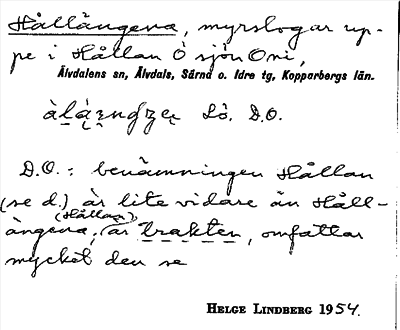 Hållängena, myrslogar up-
pe i Hållan Ö sjön Oni,
Älvdalens sn, Älvdals, Särna o. Idre tg, Kopparbergs län.
Lö. D.O.
D.O.: benämningen Hållan
(se d.) är lite vidare än Håll-
ängena; (Hållan) är trakten, omfattar
mycket den se
HELGE LINDBERG 1954.